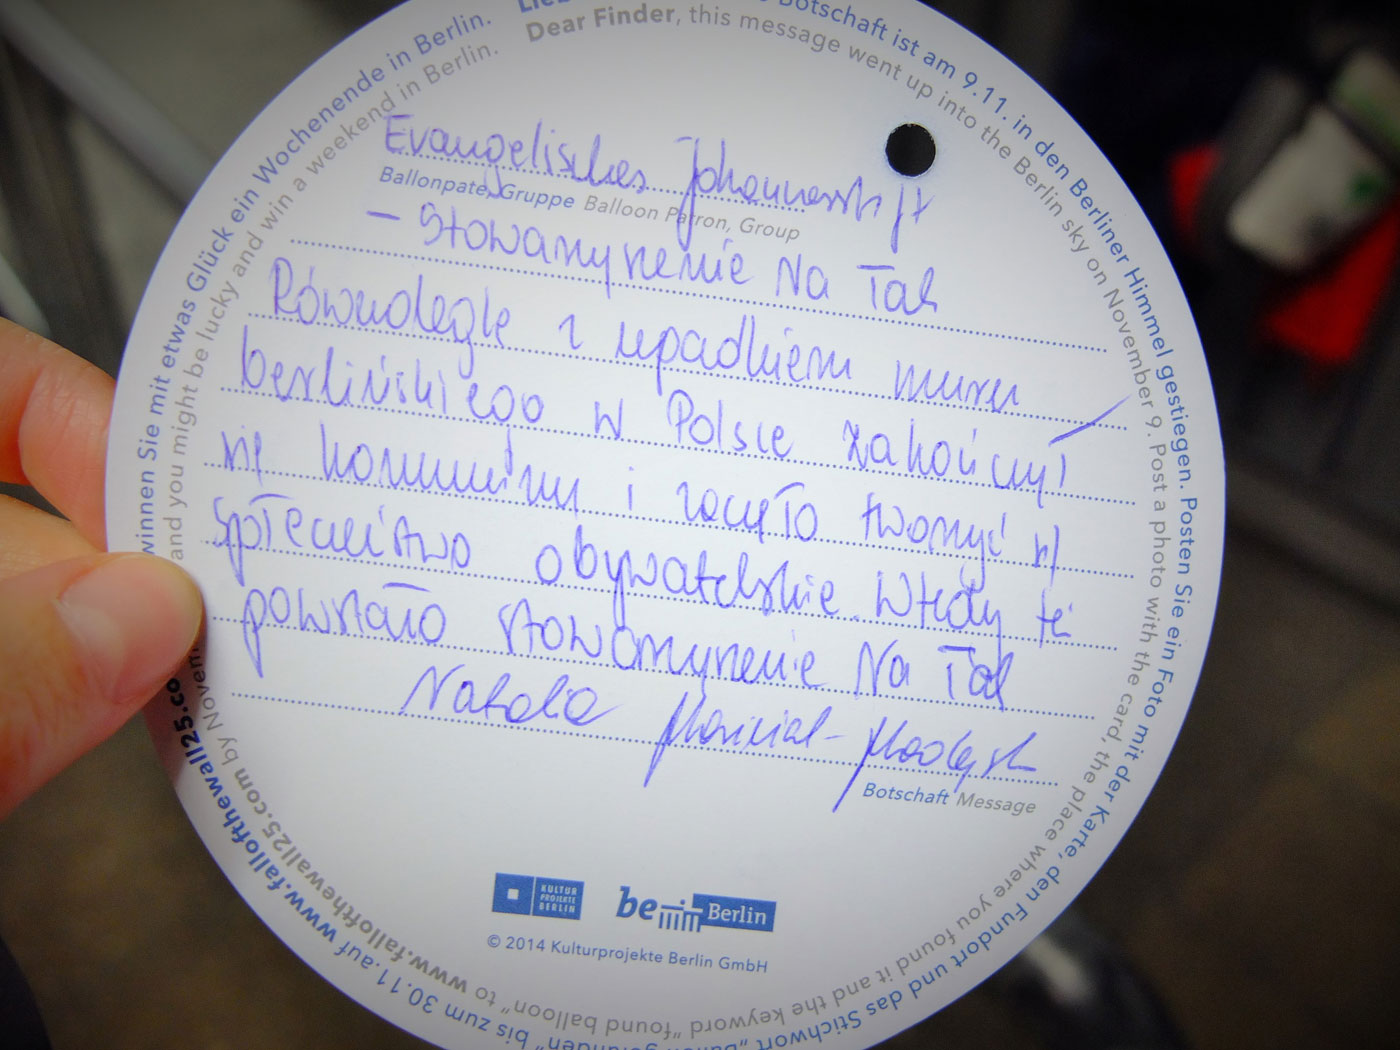 Botschaft ist am 9.11. in den Berliner Himmel gestiegen. Posten Sie ein Foto mit der Karte, den Fundort und das Stichwort
bis zum 30.11. auf www.fallofthewall25.co
winnen Sie mit etwas Glück ein Wochenende in Berlin.
Dear Finder, this message went up into the Berlin sky on November 9. Post a photo with the card, the place where you found it and the keyword "found balloon" to www.fallofthewall25.com by Novem
and you might be lucky and win a weekend in Berlin.
Evangelisches Johannesstift
Ballonpate, Gruppe Balloon Patron, Group
– Stowarzyszenie Na Tak
Równolegle z upadkiem muru
berlińskiego w Polsce zakończył
się komunizm i zaczęto tworzyć
społeczeństwo obywatelskie. Wtedy też
powstało stowarzyszenie Na Tak
Botschaft Message
KULTUR
PROJEKTE
BERLIN
be Berlin
© 2014 Kulturprojekte Berlin GmbH